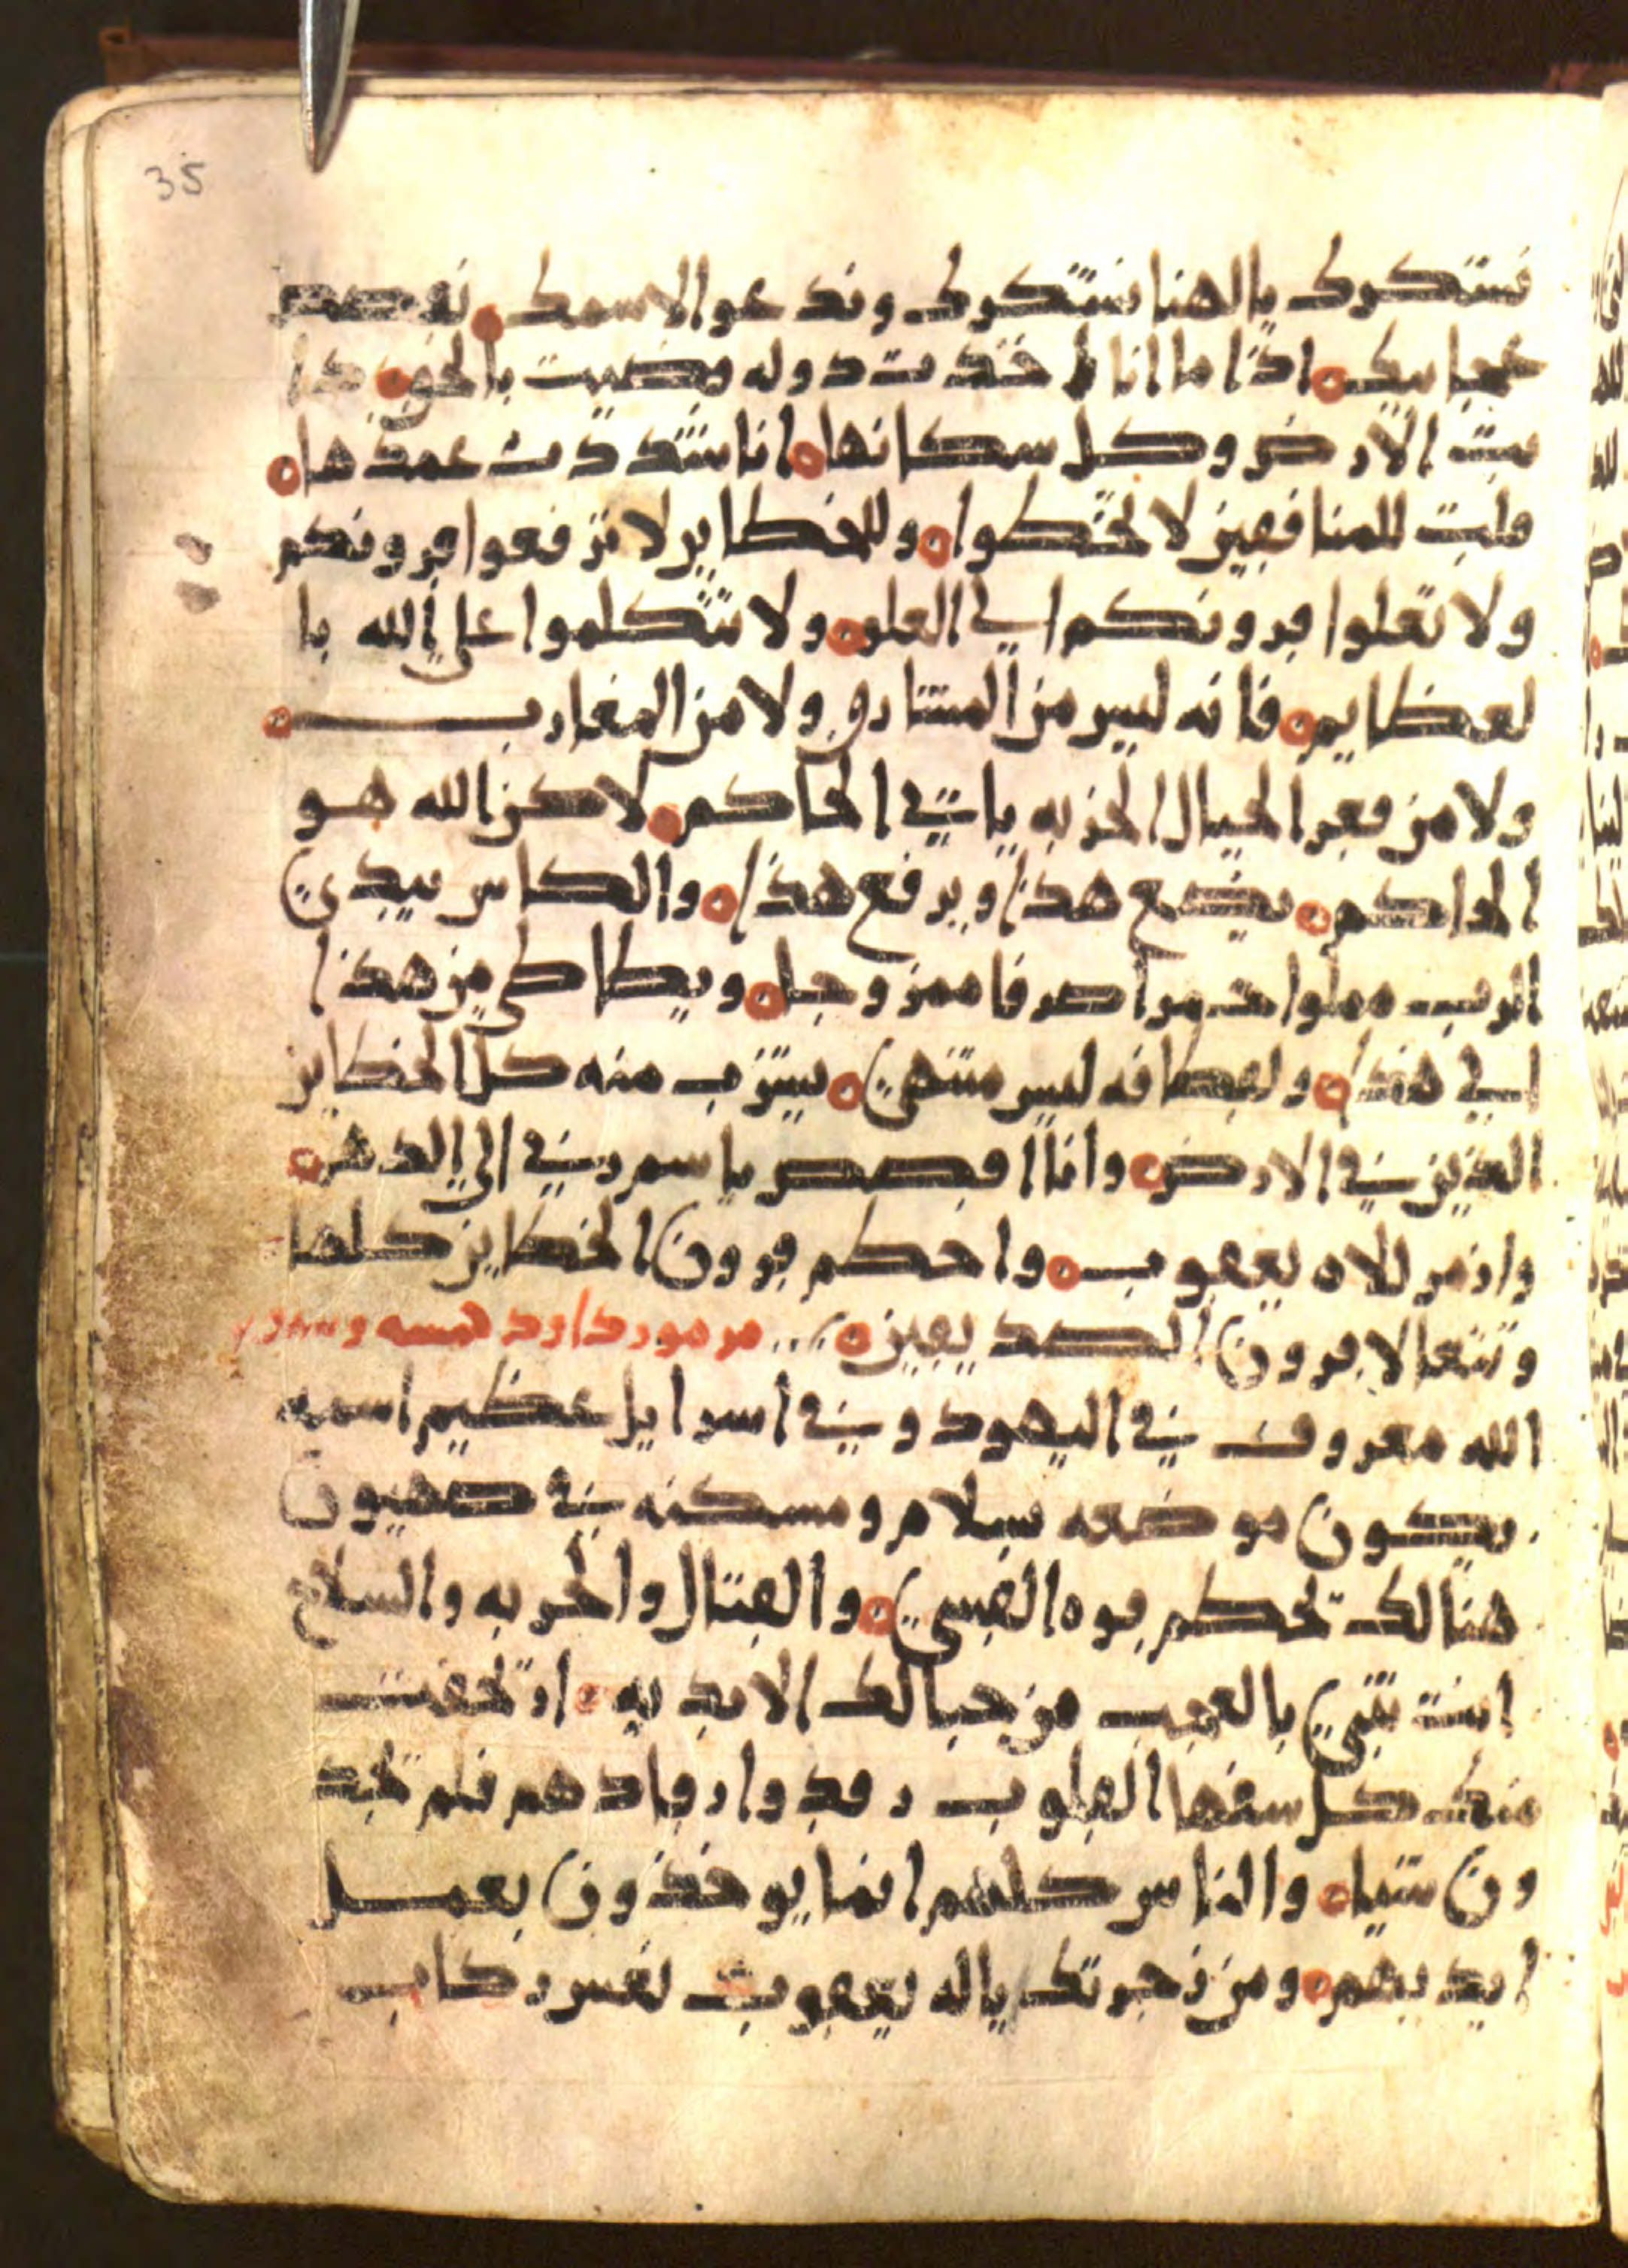 35
نستكرك يا الهنا نستكرك وندعوا لاسمك نقصص
عجايبك ه اذا ما انا اخذت دوله قضيت بالحق ذا
بت الارض وكل سكانها ه انا شددت عمدها ه
قلت للمنافقين لا تخطوا ه وللخطايين لا ترفعوا قرونكم
ولا تعلوا قرونكم الي العلو ه ولا تتكلموا على الله با
لعظايم ه فانه ليس من المشارق ولا من المغارب ه
ولا من قفر الجبال الخربه ياتي الحاكم ه لاكن الله هو
الحاكم ه يضع هذا ويرفع هذا ه والكاس بيدي
الرب مملوا خمرا صرفا ممزوجا ه ويطاطى من هذا
الي هذا ه وثفله ليس منتهي ه يشرب منه كل الخطايين
الذين في الارض ه وانا اقصص باسمه في الى الدهر ه
وازمر للاه يعقوب ه واحطم قرون الخطايين كلها
وتتعالا قرون الصديقين ه مزمور داود خمسه وسبعين
الله معروف في اليهود وفي اسرايل عظيم اسمه
يكون موضعه سلام ومسكنه في صهيون
هنالك تحطم قوه القسي ه والقتال والحربه والسلاح
انت تضي بالعجب من جبالك الابديه ه ارتجفت
منك كل سفها القلوب رقدوا رقادهم فلم تجد
ون شيا ه والناس كلهم انما يوخذون بعمل
ايديهم ه ومن زجرتك ياله يعقوب نعس ركاب